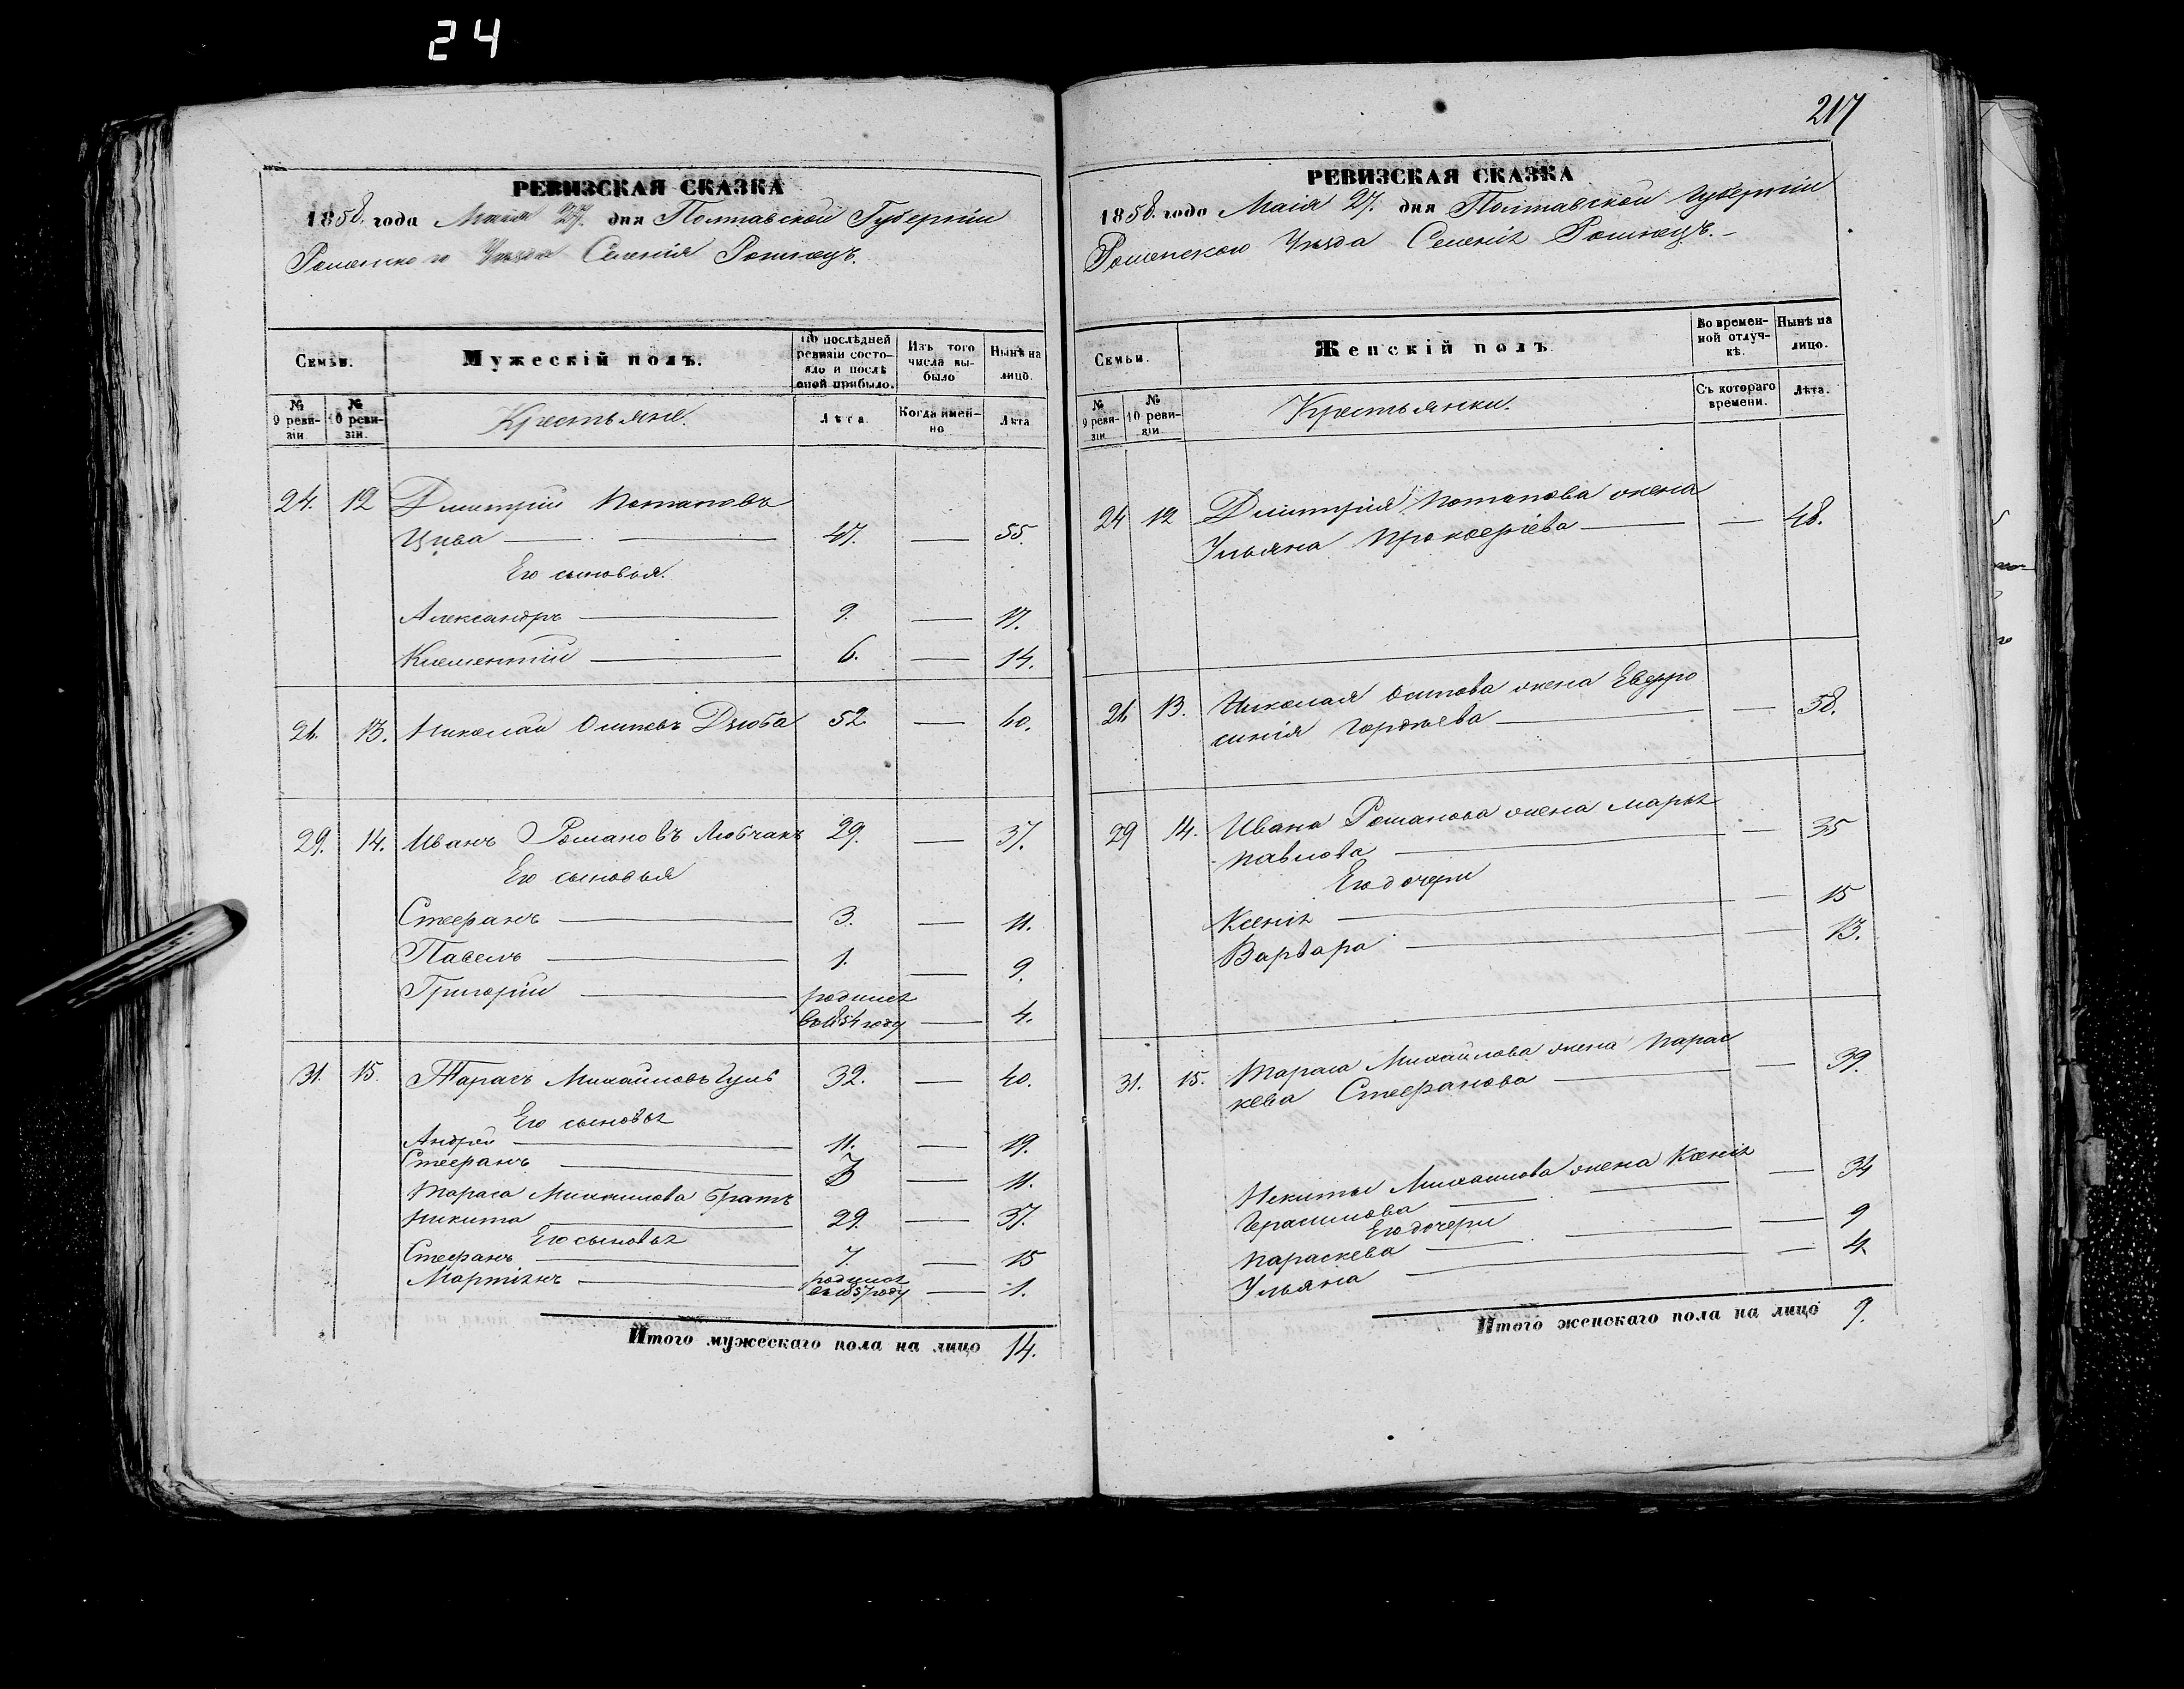 24
РЕВИЗСКАЯ СКАЗКА
1858. года Маія 27. дня Полтавской Губерніи
Роменскаго Уѣзда Селенія Ромнецъ.
Семьи.
Мужескій полъ.
По послѣдней ревизіи состояло и послѣ оной прибыло.
Изъ того числа выбыло
Нынѣ на лицо.
№ 9 ревизіи.
№ 10 ревизіи.
Крестьяне.
Лѣта.
Когда именно
Лѣта
24. 12 Дмитрій Потаповъ
Цива — 47. — 55.
Его сыновья.
Александръ — 9. — 17.
Клементій — 6. — 14.
26. 13. Николай Осиповъ Дзюба 52. — 60.
29. 14. Иванъ Романовъ Любчакъ 29. — 37.
Его сыновья
Стефанъ — 3. — 11.
Павелъ — 1. — 9.
Григорій — родился
въ 1854 году — 4.
31. 15. Тарасъ Михайловъ 32. — 40.
Его сыновья
Андрей — 11. — 19.
Стефанъ — 3 — 11.
Тараса Михайлова братъ
Никита — 29. — 37.
Его сыновья
Стефанъ — 7. — 15
Мартінъ — родился
въ 1857 году — 1.
Итого мужескаго пола на лицо 14.
217
РЕВИЗСКАЯ СКАЗКА
1858. года Маія 27. дня Полтавской Губерніи
Роменскаго Уѣзда Селенія Ромнецъ.
Семьи.
Женскій полъ.
Во временной отлучкѣ.
Нынѣ на лицо.
№ 9 ревизіи
№ 10 ревизіи
Крестьянки.
Съ котораго времени.
Лѣта.
24 12 Дмитрія Потапова жена
Ульяна Прокофіева — — 48.
26 13. Николая Осипова жена Евфро
синія Гордѣева — — 58.
29 14. Ивана Романова жена Марья
Павлова — — 35
Его дочери
Ксенія — — 15
Варвара — — 13.
31. 15. Тараса Михайлова жена Парас
кева Стефанова — — 39.
Никиты Михайлова жена Ксенія
Герасимова — — 34
Его дочери
Параскева — — 9
Ульяна — — 4
Итого женскаго пола на лицо 9.